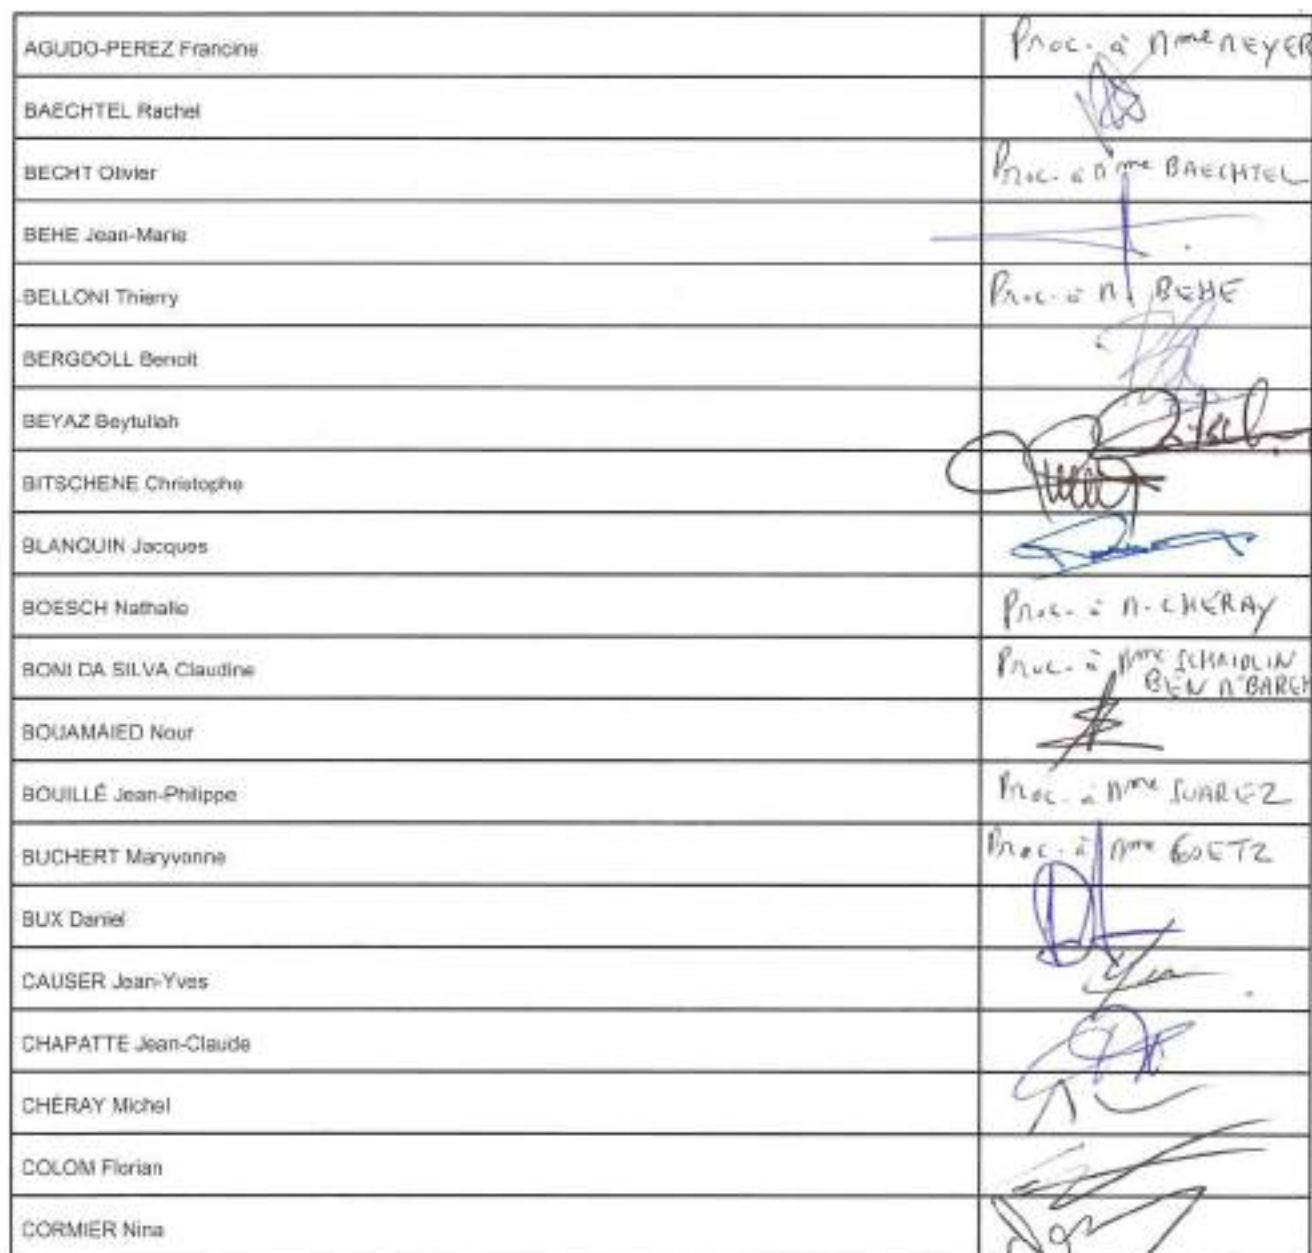 AGUDO-PEREZ Francine Proc. à Mme MEYER
BAECHTEL Rachel
BECHT Olivier Proc. à Mme BAECHTEL
BEHE Jean-Marie
BELLONI Thierry Proc. à M. BEHE
BERGDOLL Benoit
BEYAZ Beytullah
BITSCHENE Christophe
BLANQUIN Jacques
BOESCH Nathalie Proc. à M. CHÉRAY
BONI DA SILVA Claudine Proc. à Mme SCHAIDLIN
BEN M'BAREK
BOUAMAIED Nour
BOUILLÉ Jean-Philippe Proc. à Mme SUAREZ
BUCHERT Maryvonne Proc. à Mme GOETZ
BUX Daniel
CAUSER Jean-Yves
CHAPATTE Jean-Claude
CHÉRAY Michel
COLOM Florian
CORMIER Nina